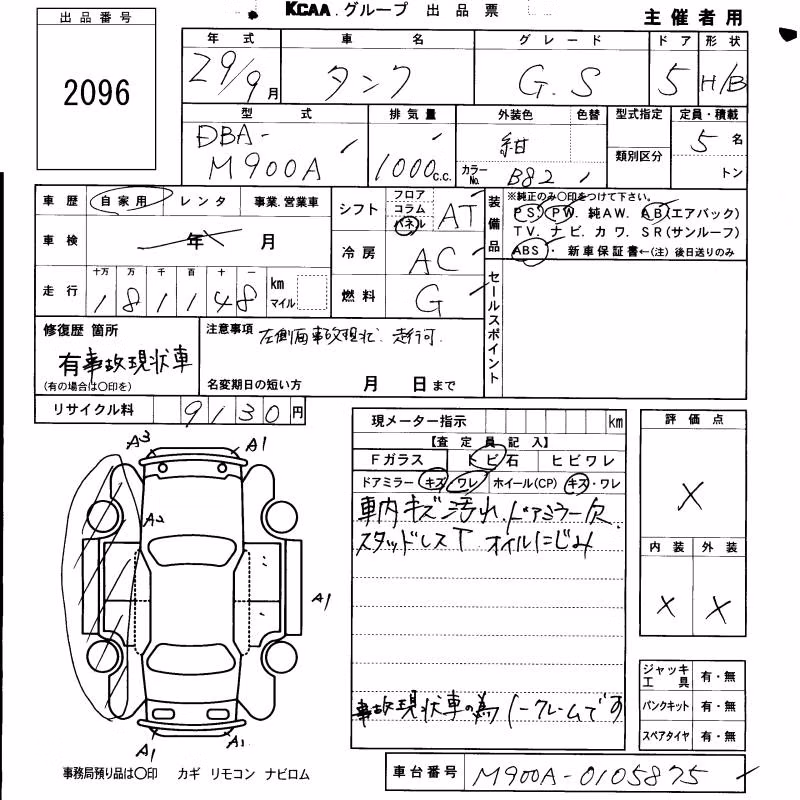 KCAA グループ 出品票
主催者用
出品番号
2096
年式 車名 グレード ドア 形状
29/9月 タンク G.S 5 H/B
型式 排気量 外装色 色替 型式指定 定員・積載
DBA-M900A 1000c.c. 紺 カラーNo. B82 類別区分 5名 トン
車歴 自家用 レンタ 事業.営業車
シフト フロア コラム パネル AT
装備品 ※純正のみ〇印をつけて下さい。
PS. PW. 純AW. AB(エアバック)
TV. ナビ. カワ. SR(サンルーフ)
ABS・ 新車保証書←(注) 後日送りのみ
車検 年 月
冷房 AC
走行 十万 万 千 百 十 一
181148 km マイル
燃料 G
セールスポイント
修復歴 箇所
有 事故現状車
(有の場合は〇印を)
注意事項 左側面事故現状、走行可.
名変期日の短い方 月 日まで
リサイクル料 9130円
現メーター指示 km
【査定員記入】
Fガラス トビ石 ヒビワレ
ドアミラー キズ ワレ ホイール(CP) キズ・ワレ
車内キズ汚れ、ドアミラー欠
スタッドレスT オイルにじみ
事故現状車の為ノークレームです
評価点
X
内装 外装
X X
A3 A1
A2
A1
A1 A1
ジャッキ工具 有・無
パンクキット 有・無
スペアタイヤ 有・無
事務局預り品は〇印 カギ リモコン ナビロム
車台番号 M900A-0105875